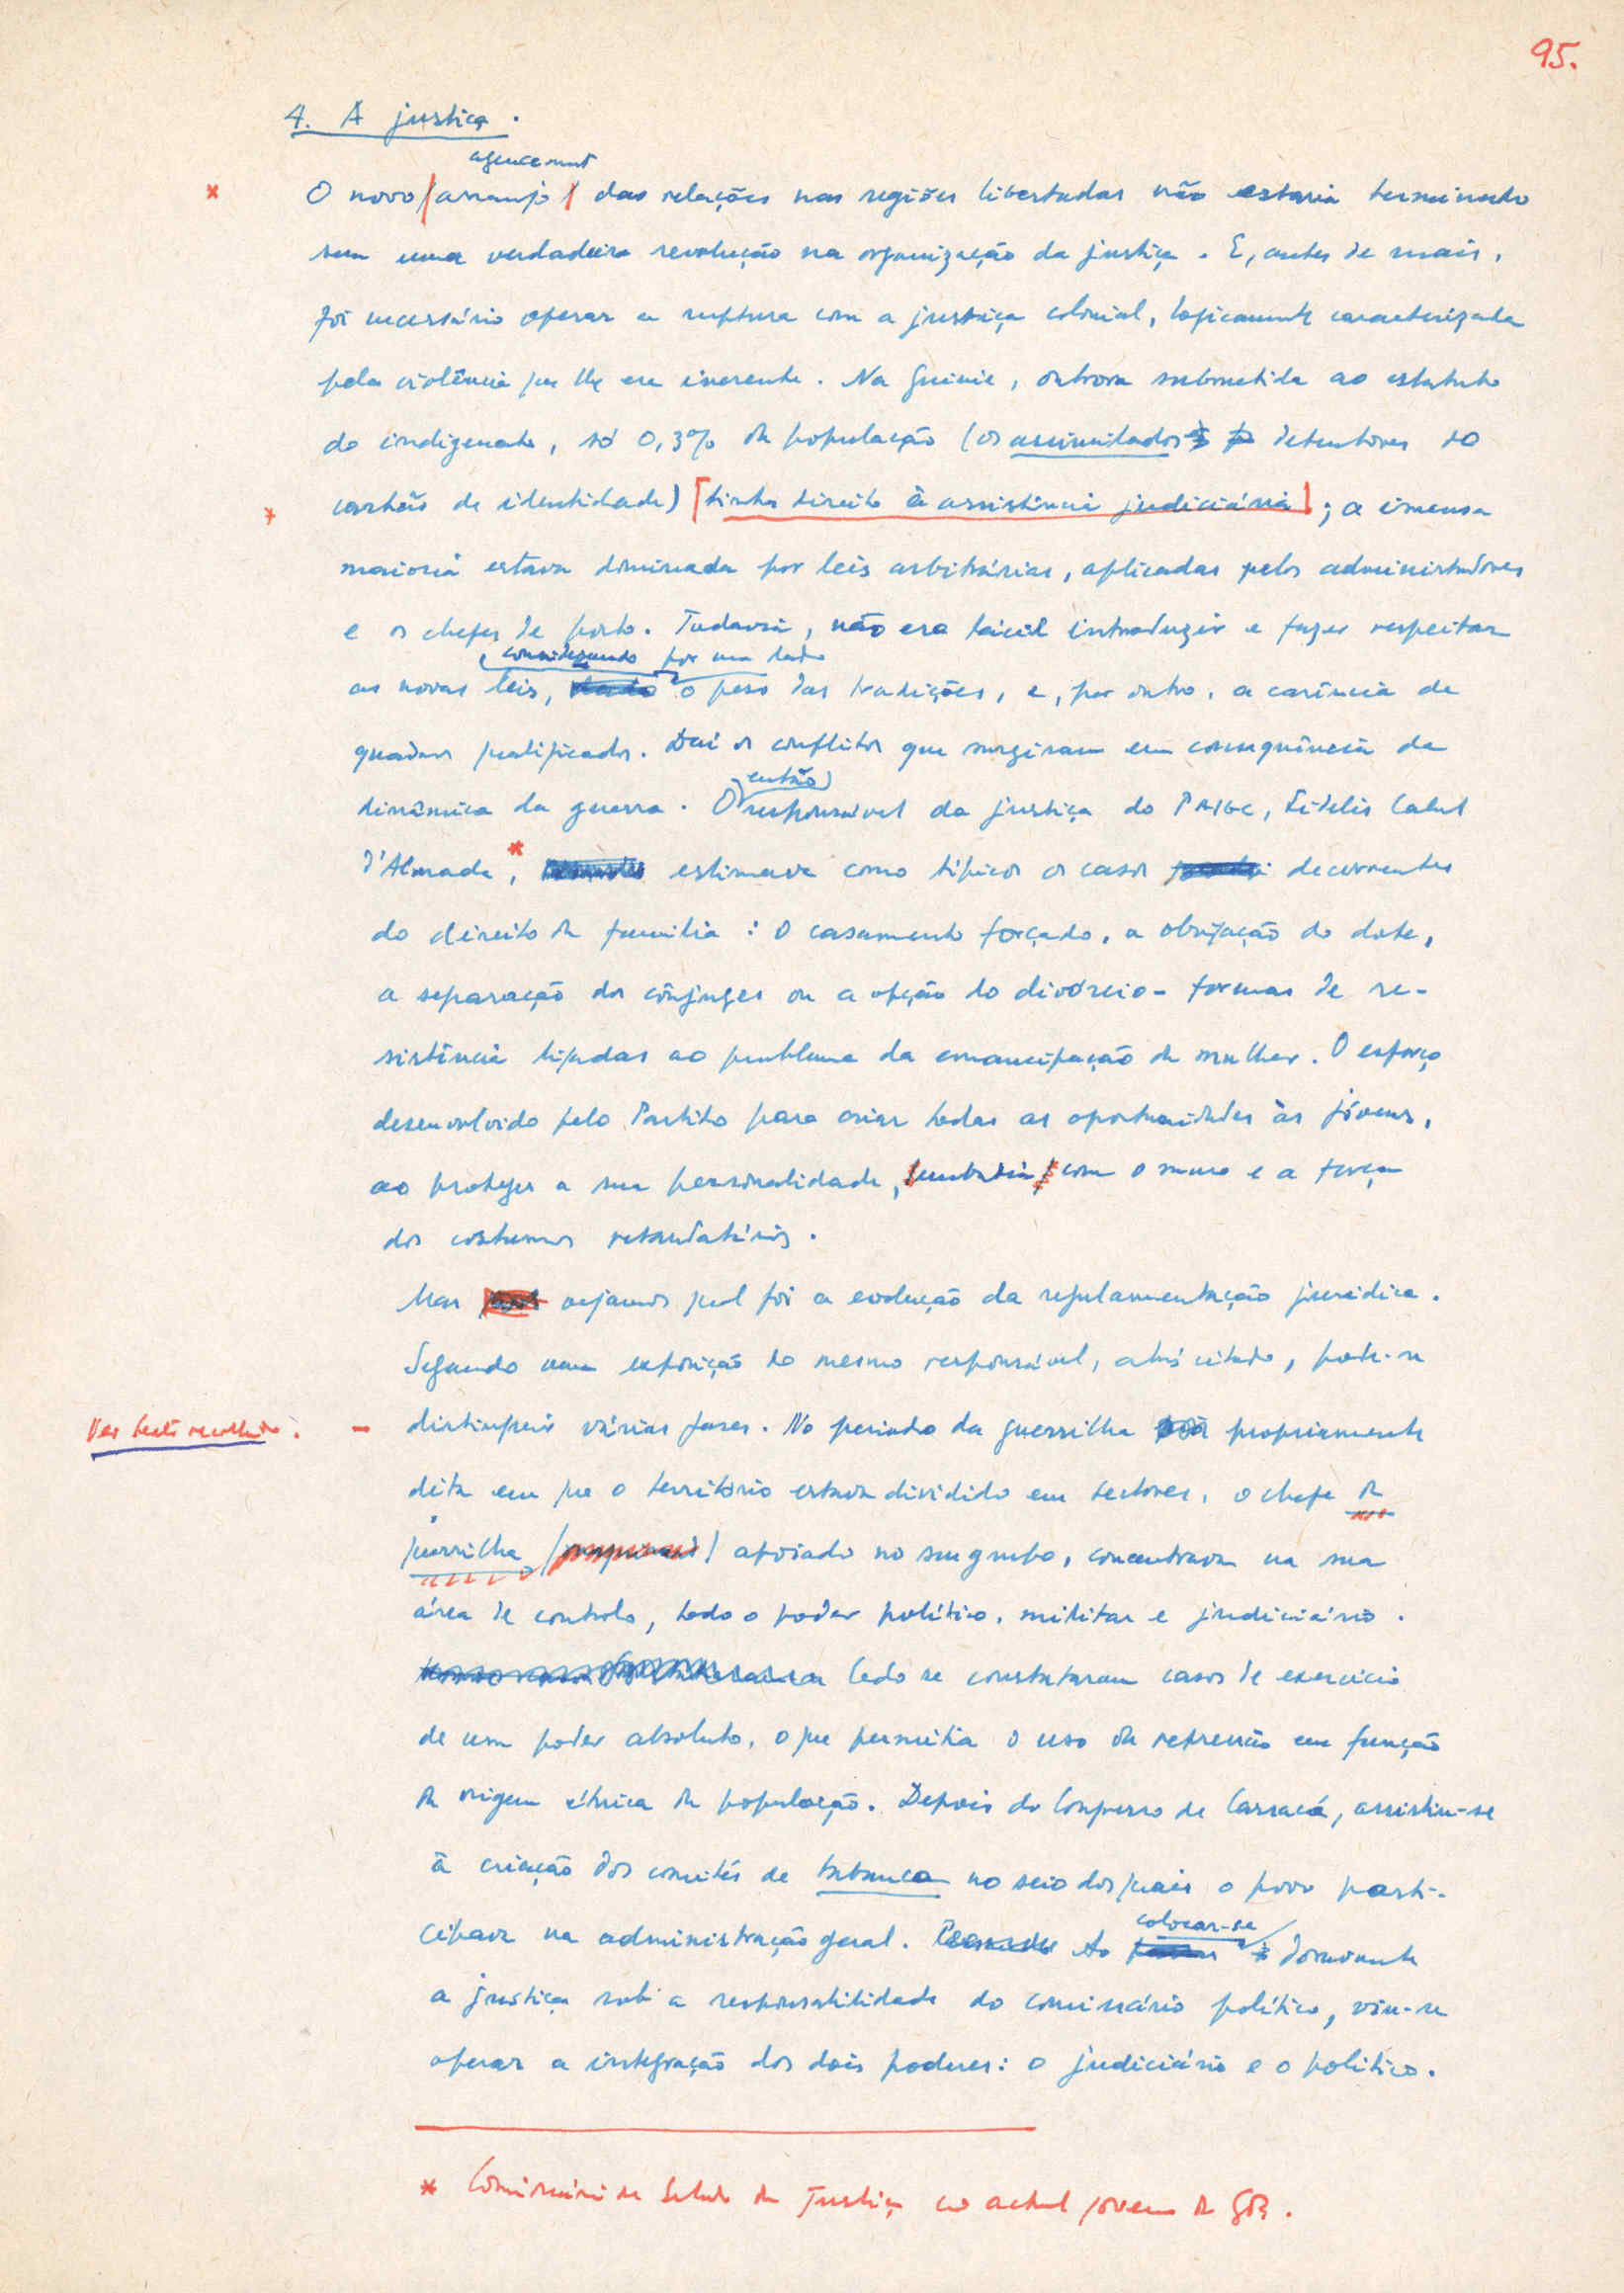 95.
4. A justiça.
agencement
O novo /arranjo/ das relações nas regiões libertadas não estaria terminado
sem uma verdadeira revolução na organização da justiça. E, antes de mais,
foi necessário operar a ruptura com a justiça colonial, logicamente caracterizada
pela violência que lhe era inerente. Na Guiné, outrora submetida ao estatuto
do indigenato, só 0,3% da população (os assimilados detentores do
cartão de identidade) [tinha direito à assistência judiciária]; a imensa
maioria estava dominada por leis arbitrárias, aplicadas pelos administradores
e os chefes de posto. Todavia, não era fácil introduzir e fazer respeitar
considerando por um lado
as novas leis, dado o peso das tradições, e, por outro, a carência de
quadros qualificados. Daí os conflitos que surgiram em consequência da
então
dinâmica da guerra. O responsável da justiça do PAIGC, Fidelis Cabral
d'Almada,* estimava como típicos os casos decorrentes
do direito da família: o casamento forçado, a obrigação do dote,
a separação dos cônjuges ou a opção do divórcio - formas de re-
sistência ligadas ao problema da emancipação da mulher. O esforço
desenvolvido pelo Partido para criar todas as oportunidades às jóvens,
ao proteger a sua personalidade, /embatia/ com o muro e a força
dos costumes retardatários.
Mas vejamos qual foi a evolução da regulamentação jurídica.
Segundo uma exposição do mesmo responsável, atrás citado, pode-se
Ver texto recolhido. - distinguir várias fases. No período da guerrilha propriamente
dita em que o território estava dividido em sectores, o chefe da
guerrilha apoiado no seu grupo, concentrava na sua
área de controlo, todo o poder político, militar e judiciário.
Cedo se constataram casos de exercício
de um poder absoluto, o que permitia o uso da repressão em função
da origem étnica da população. Depois do Congresso de Cassacá, assistiu-se
à criação dos comités de tabanca no seio dos quais o povo parti-
cipava na administração geral. Ao colocar-se doravante
a justiça sob a responsabilidade do comissário político, viu-se
operar a integração dos dois poderes: o judiciário e o político.
* Comissário de Estado da Justiça no actual governo da GB.